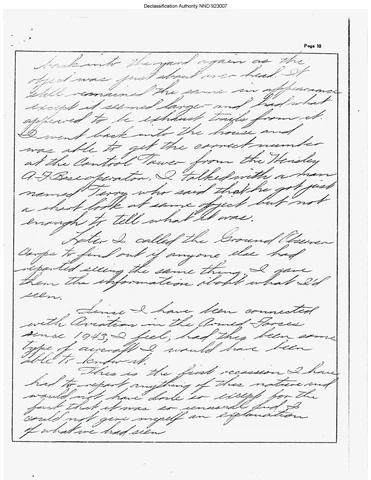 Declassification Authority NND 923007
Page 10
back into the yard again as the
object was just about over head. It
still remained the same in appearance
except it seemed larger and had what
appeared to be exhaust trails from it.
I went back into the house and
was able to get the correct number
at the Control Tower from the Hensley
A.F. Base operator. I talked with a man
named Terry who said that he got just
a short look at same object but not
enough to tell what it was.
Later I called the Ground Observer
Corps to find out if anyone else had
reported seeing the same thing. I gave
them the information about what I'd
seen.
Since I have been connected
with Aviation in the Armed Forces
since 1943, I feel, had they been some
type of aircraft I would have been
able to know it.
This is the first occassion I have
had to report anything of this nature and
would not have done so except for the
fact that it was so unusual and I
could not give myself an explanation
of what we had seen